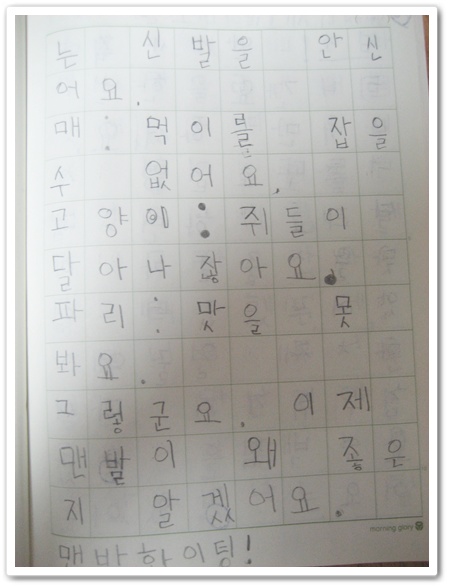 는 신발을 안 신
어요.
매: 먹이를 잡을
수 없어요.
고양이: 쥐들이
달아나잖아요.
파리: 맛을 못
봐요.
그렇군요. 이제
맨발이 왜 좋은
지 알겠어요.
맨발 화이팅!
morning glory